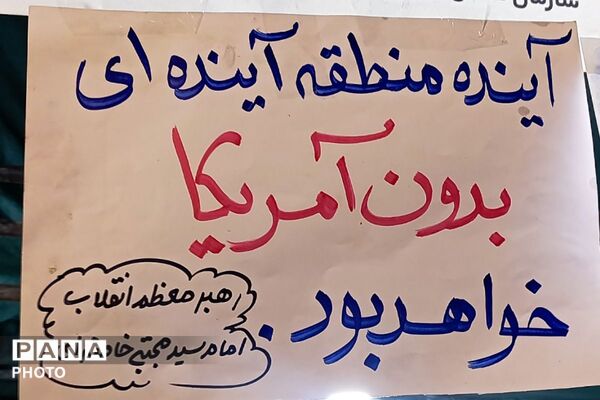 سازمان
آینده منطقه آینده ای
بدون آمریکا
خواهد بود.
رهبر معظم انقلاب
امام سید مجتبی
PANA
PHOTO